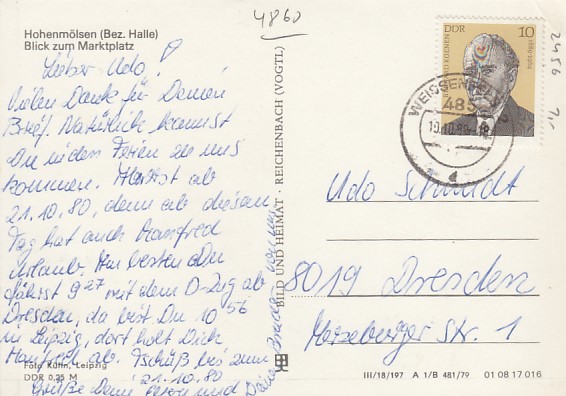 4860
Hohenmölsen (Bez. Halle)
Blick zum Marktplatz
Lieber Udo!
Vielen Dank für Deinen
Brief. Natürlich kannst
Du in den Ferien zu uns
kommen. ab
21.10.80, denn ab diesem
Tag hat auch Manfred
Urlaub. Am besten Du
fährst 9 27 mit dem D-Zug ab
Dresden, da bist Du 10 56
in Leipzig, dort holt Dich
Manfred ab. Tschüß bis zum
21.10.80
Grüße Deine und
Deine Brüder von mir
Foto Kühn, Leipzig
DDR 0,25 M
BILD UND HEIMAT · REICHENBACH (VOGTL)
DDR
10
KOENEN
1886-1964
WEISSENFELS 2
485
19.10.80-18
d
2456
Udo Schmidt
8019 Dresden
Merseburger Str. 1
III/18/197 A 1/B 481/79 01 08 17 016